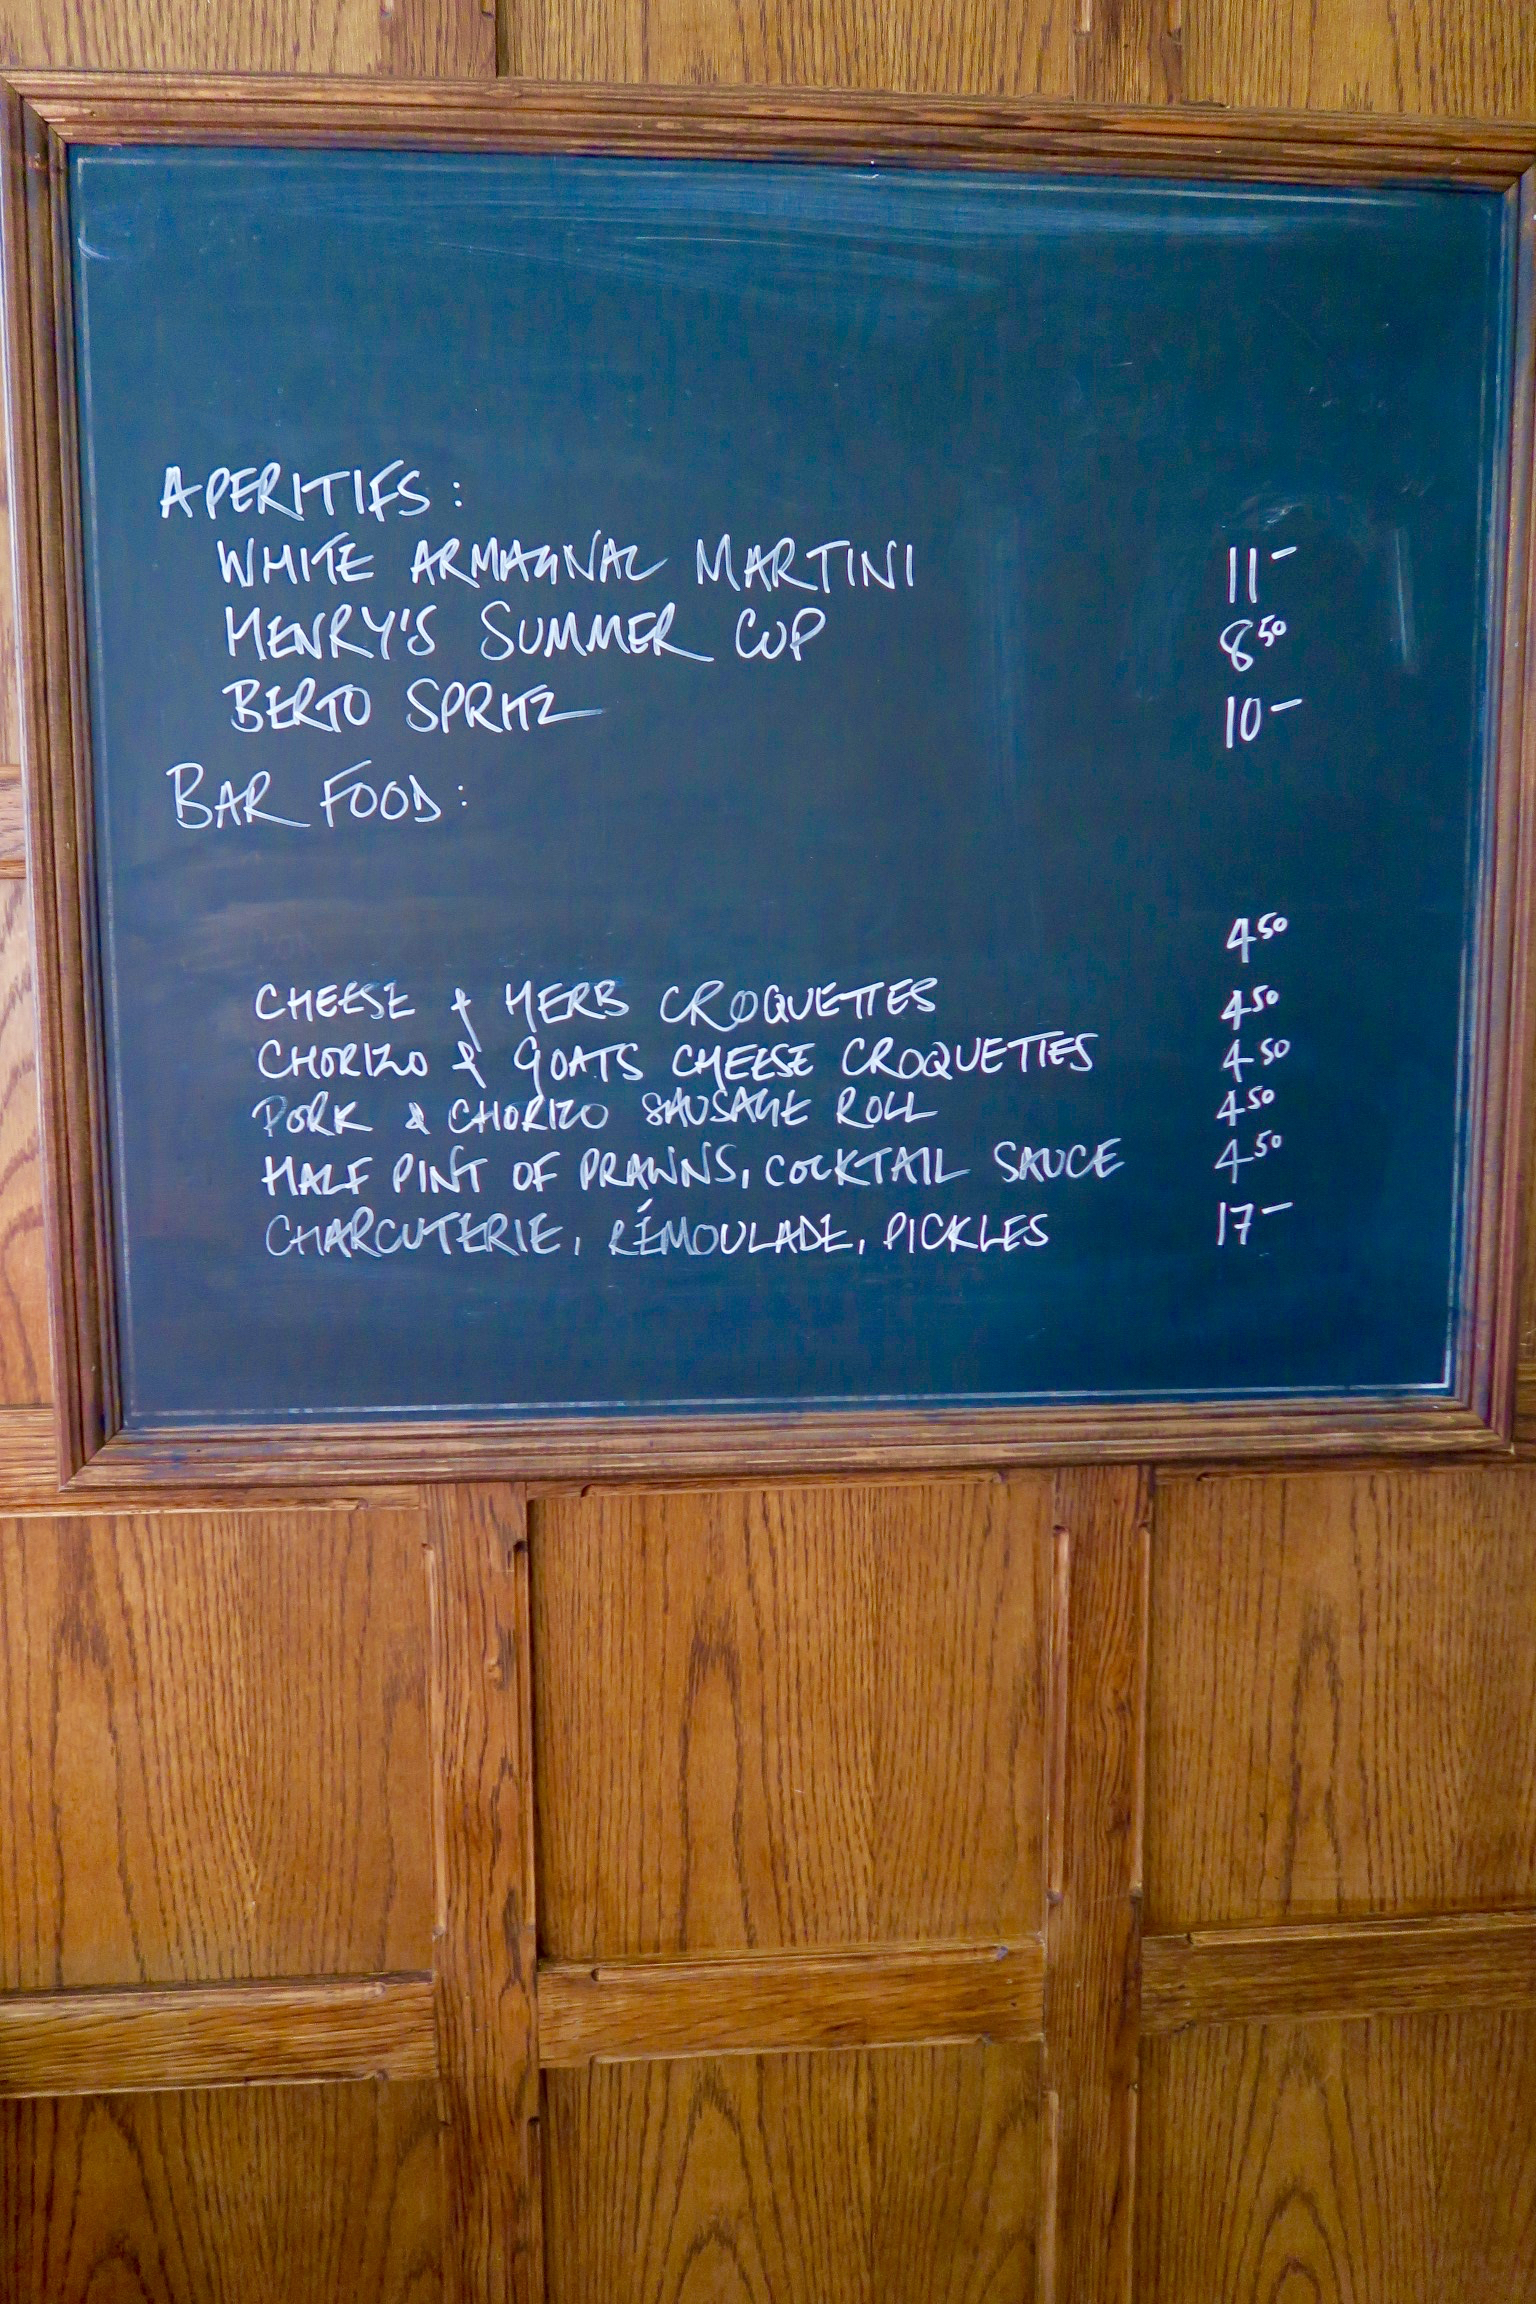 APERITIFS:
WHITE ARMAGNAC MARTINI 11-
HENRY'S SUMMER CUP 8 50
BERTO SPRITZ 10-
BAR FOOD:
4 50
CHEESE & HERB CROQUETTES 4 50
CHORIZO & GOATS CHEESE CROQUETTES 4 50
PORK & CHORIZO SAUSAGE ROLL 4 50
HALF PINT OF PRAWNS, COCKTAIL SAUCE 4 50
CHARCUTERIE, RÉMOULADE, PICKLES 17-